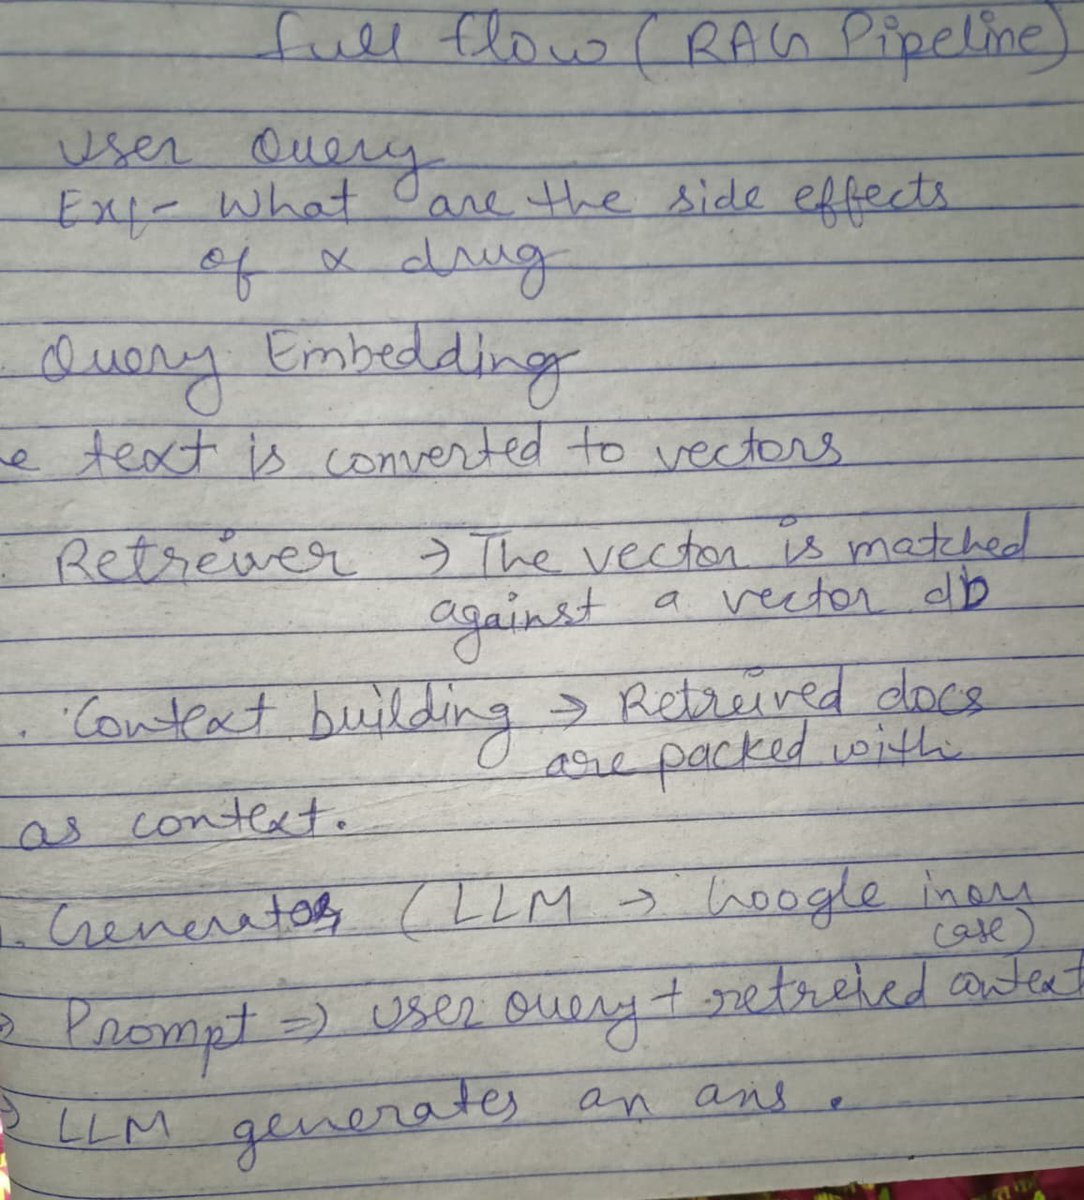 full flow (RAG Pipeline)
User Query
Exp- What are the side effects
of x drug
Query Embedding
e text is converted to vectors
Retreiver → The vector is matched
against a vector db
. Context building → Retreived docs
are packed with
as context.
. Generator (LLM → Google in our
case)
Prompt ⇒ user query + retreived context
LLM generates an ans.